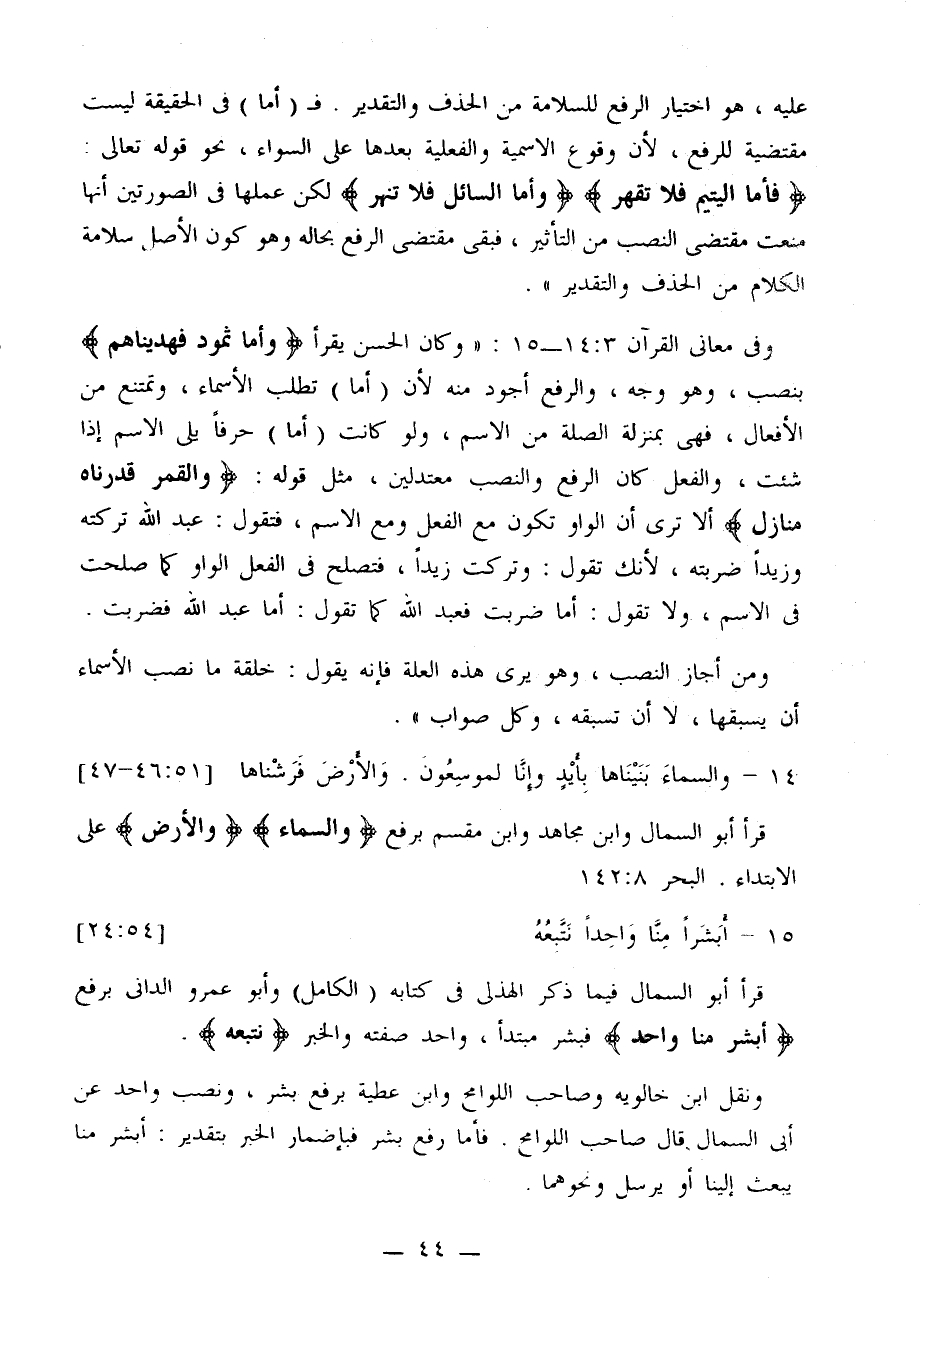 عليه ، هو اختيار الرفع للسلامة من الحذف والتقدير . فـ ( أما ) فى الحقيقة ليست
مقتضية للرفع ، لأن وقوع الاسمية والفعلية بعدها على السواء ، نحو قوله تعالى :
﴿ فأما اليتيم فلا تقهر ﴾ ﴿ وأما السائل فلا تنهر ﴾ لكن عملها فى الصورتين أنها
منعت مقتضى النصب من التأثير ، فبقى مقتضى الرفع بحاله وهو كون الأصل سلامة
الكلام من الحذف والتقدير » .
وفى معانى القرآن ١٤:٣ــ١٥ : « وكان الحسن يقرأ ﴿ وأما ثمود فهديناهم ﴾
بنصب ، وهو وجه ، والرفع أجود منه لأن ( أما ) تطلب الأسماء ، وتمتنع من
الأفعال ، فهى بمنزلة الصلة من الاسم ، ولو كانت ( أما ) حرفاً يلى الاسم إذا
شئت ، والفعل كان الرفع والنصب معتدلين ، مثل قوله : ﴿ والقمر قدرناه
منازل ﴾ ألا ترى أن الواو تكون مع الفعل ومع الاسم ، فتقول : عبد الله تركته
وزيداً ضربته ، لأنك تقول : وتركت زيداً ، فتصلح فى الفعل الواو كما صلحت
فى الاسم ، ولا تقول : أما ضربت فعبد الله كما تقول : أما عبد الله فضربت .
ومن أجاز النصب ، وهو يرى هذه العلة فإنه يقول : خلقة ما نصب الأسماء
أن يسبقها ، لا أن تسبقه ، وكل صواب » .
١٤ – والسماءَ بَنَيْنَاها بِأَيْدٍ وإِنَّا لموسِعُون . وَالأَرْضَ فَرَشْناها [٤٦:٥١–٤٧]
قرأ أبو السمال وابن مجاهد وابن مقسم برفع ﴿ والسماء ﴾ ﴿ والأرض ﴾ على
الابتداء . البحر ١٤٢:٨
١٥ – أَبَشَراً مِنَّا وَاحِداً نَتَّبِعُهُ [٢٤:٥٤]
قرأ أبو السمال فيما ذكر الهذلى فى كتابه ( الكامل) وأبو عمرو الدانى برفع
﴿ أبشر منا واحد ﴾ فبشر مبتدأ ، واحد صفته والخبر ﴿ نتبعه ﴾ .
ونقل ابن خالويه وصاحب اللوامح وابن عطية برفع بشر ، ونصب واحد عن
أبى السمال قال صاحب اللوامح . فأما رفع بشر فبإضمار الخبر بتقدير : أبشر منا
يبعث إلينا أو يرسل ونحوهما .
— ٤٤ —